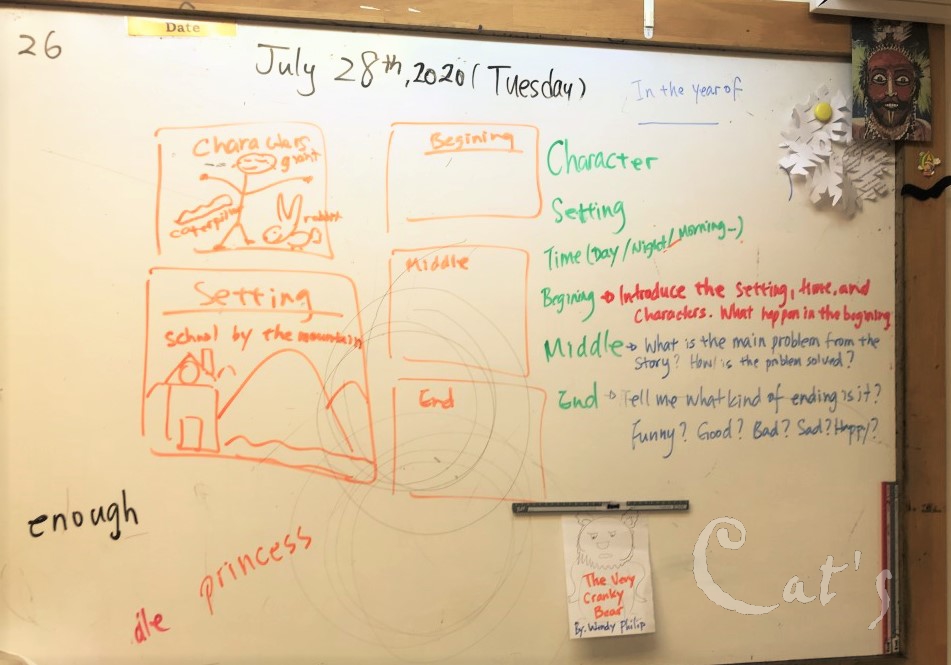 Date
26
July 28th, 2020 (Tuesday)
In the year of
Charac
giant
caterpillar
rabbit
Setting
school by the mountain
Begining
Middle
End
Character
Setting
Time (Day / Night / Morning...)
Begining → Introduce the setting, time, and
characters. What happen in the beginning
Middle → What is the main problem from the
story? How is the problem solved?
End → Tell me what kind of ending is it?
Funny? Good? Bad? Sad? Happy?
enough
princess
The Very
Cranky
Bear
By. Wendy Philip
Cat's